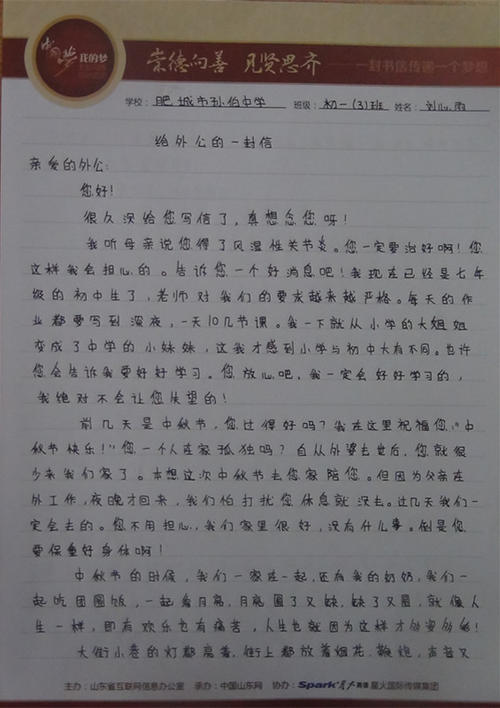 中国梦 我的梦
崇德向善 见贤思齐 ——一封书信传递一个梦想
学校: 肥城市孙伯中学 班级: 初一(3)班 姓名: 刘心雨
给外公的一封信
亲爱的外公:
您好!
很久没给您写信了,真想念您呀!
我听母亲说您得了风湿性关节炎。您一定要治好啊!您
这样我会担心的。告诉您一个好消息吧!我现在已经是七年
级的初中生了,老师对我们的要求越来越严格。每天的作
业都要写到深夜,一天10几节课。我一下就从小学的大姐姐
变成了中学的小妹妹,这我才感到小学与初中大有不同。也许
您会告诉我要好好学习。您放心吧,我一定会好好学习的,
我绝对不会让您失望的!
前几天是中秋节,您过得好吗?我在这里祝福您“中
秋节快乐!”您一个人在家孤独吗?自从外婆去世后,您就很
少来我们家了。本想这次中秋节去您家陪您。但因为父亲在
外工作,夜晚才回来,我们怕打扰您休息就没去。过几天我们一
定会去的。您不用担心,我们家里很好,没有什么事。倒是您
要保重好身体啊!
中秋节的时候,我们一家在一起,还有我的奶奶,我们一
起吃团圆饭,一起看月亮,月亮圆了又缺,缺了又圆,就像人
生一样,即有欢乐也有痛苦,人生也就因为这样才够姿够彩!
大街小巷的灯都亮着,街上都放着烟花、鞭炮,声音又
主办:山东省互联网信息办公室 承办:中国山东网 协办:Spark星火英语 星火国际传媒集团